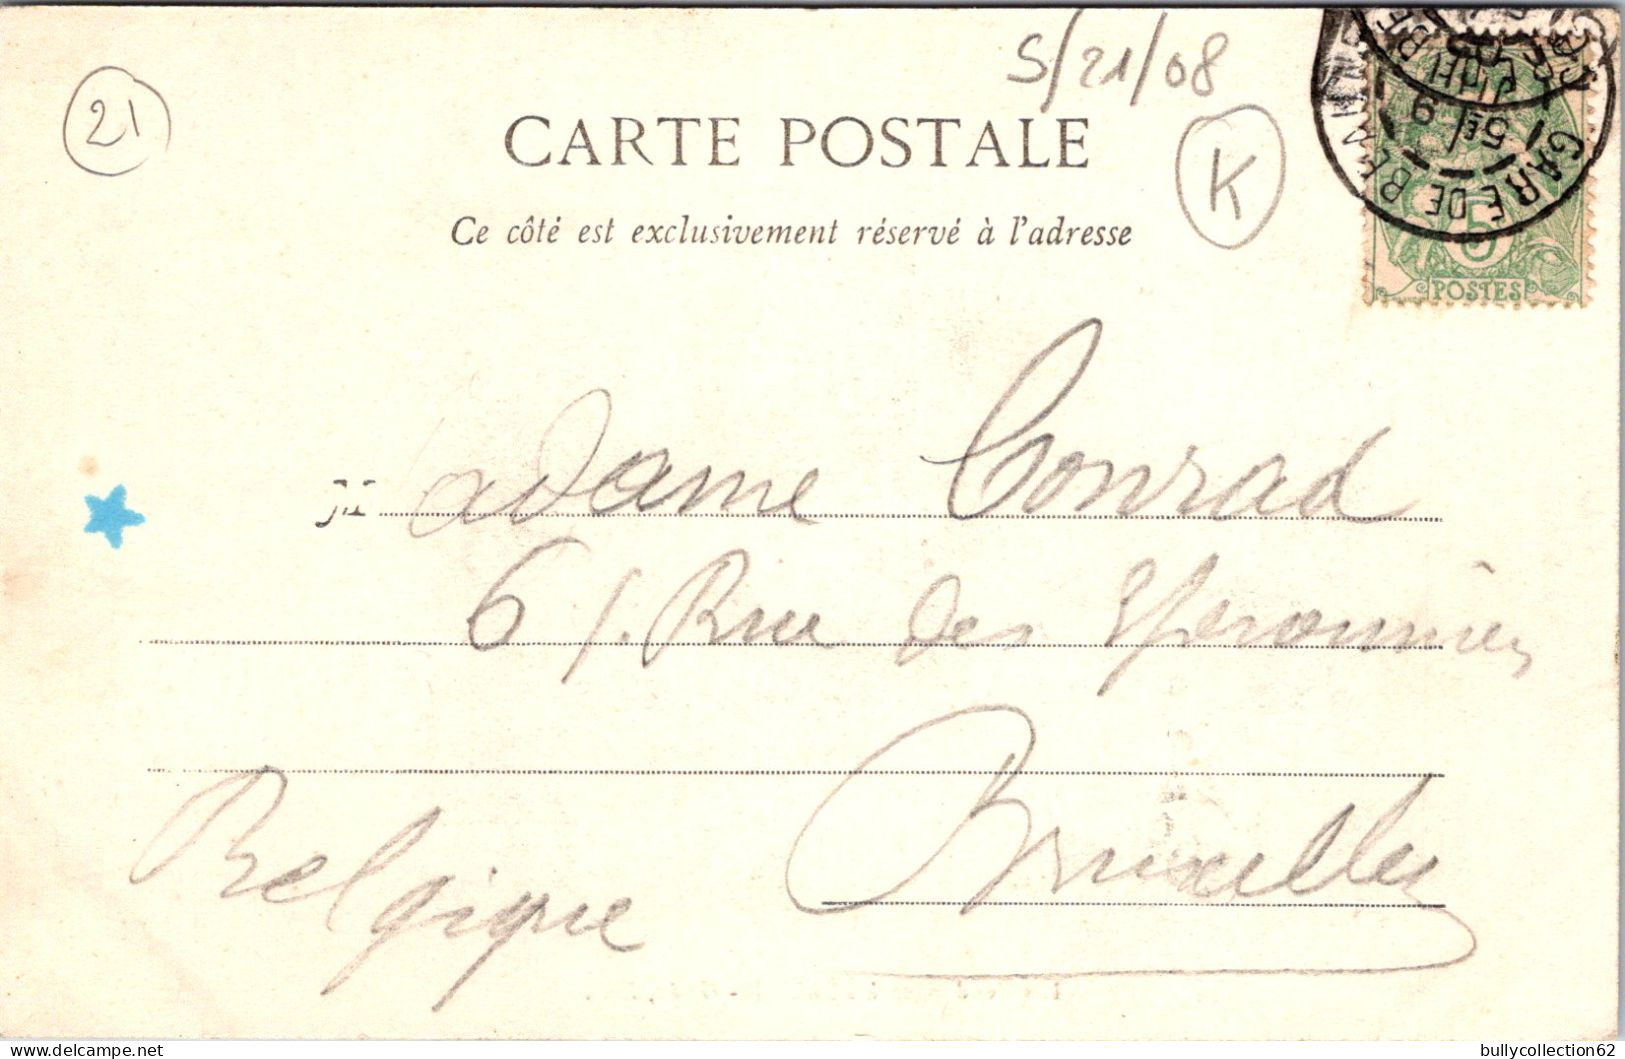 21
S/21/08
CARTE POSTALE
K
Ce côté est exclusivement réservé à l'adresse
GARE DE BEAUNE
5E
9
JUIL
5
POSTES
Madame Conrad
61. Rue des Eperonniers
Bruxelles
Belgique
bullycollection62